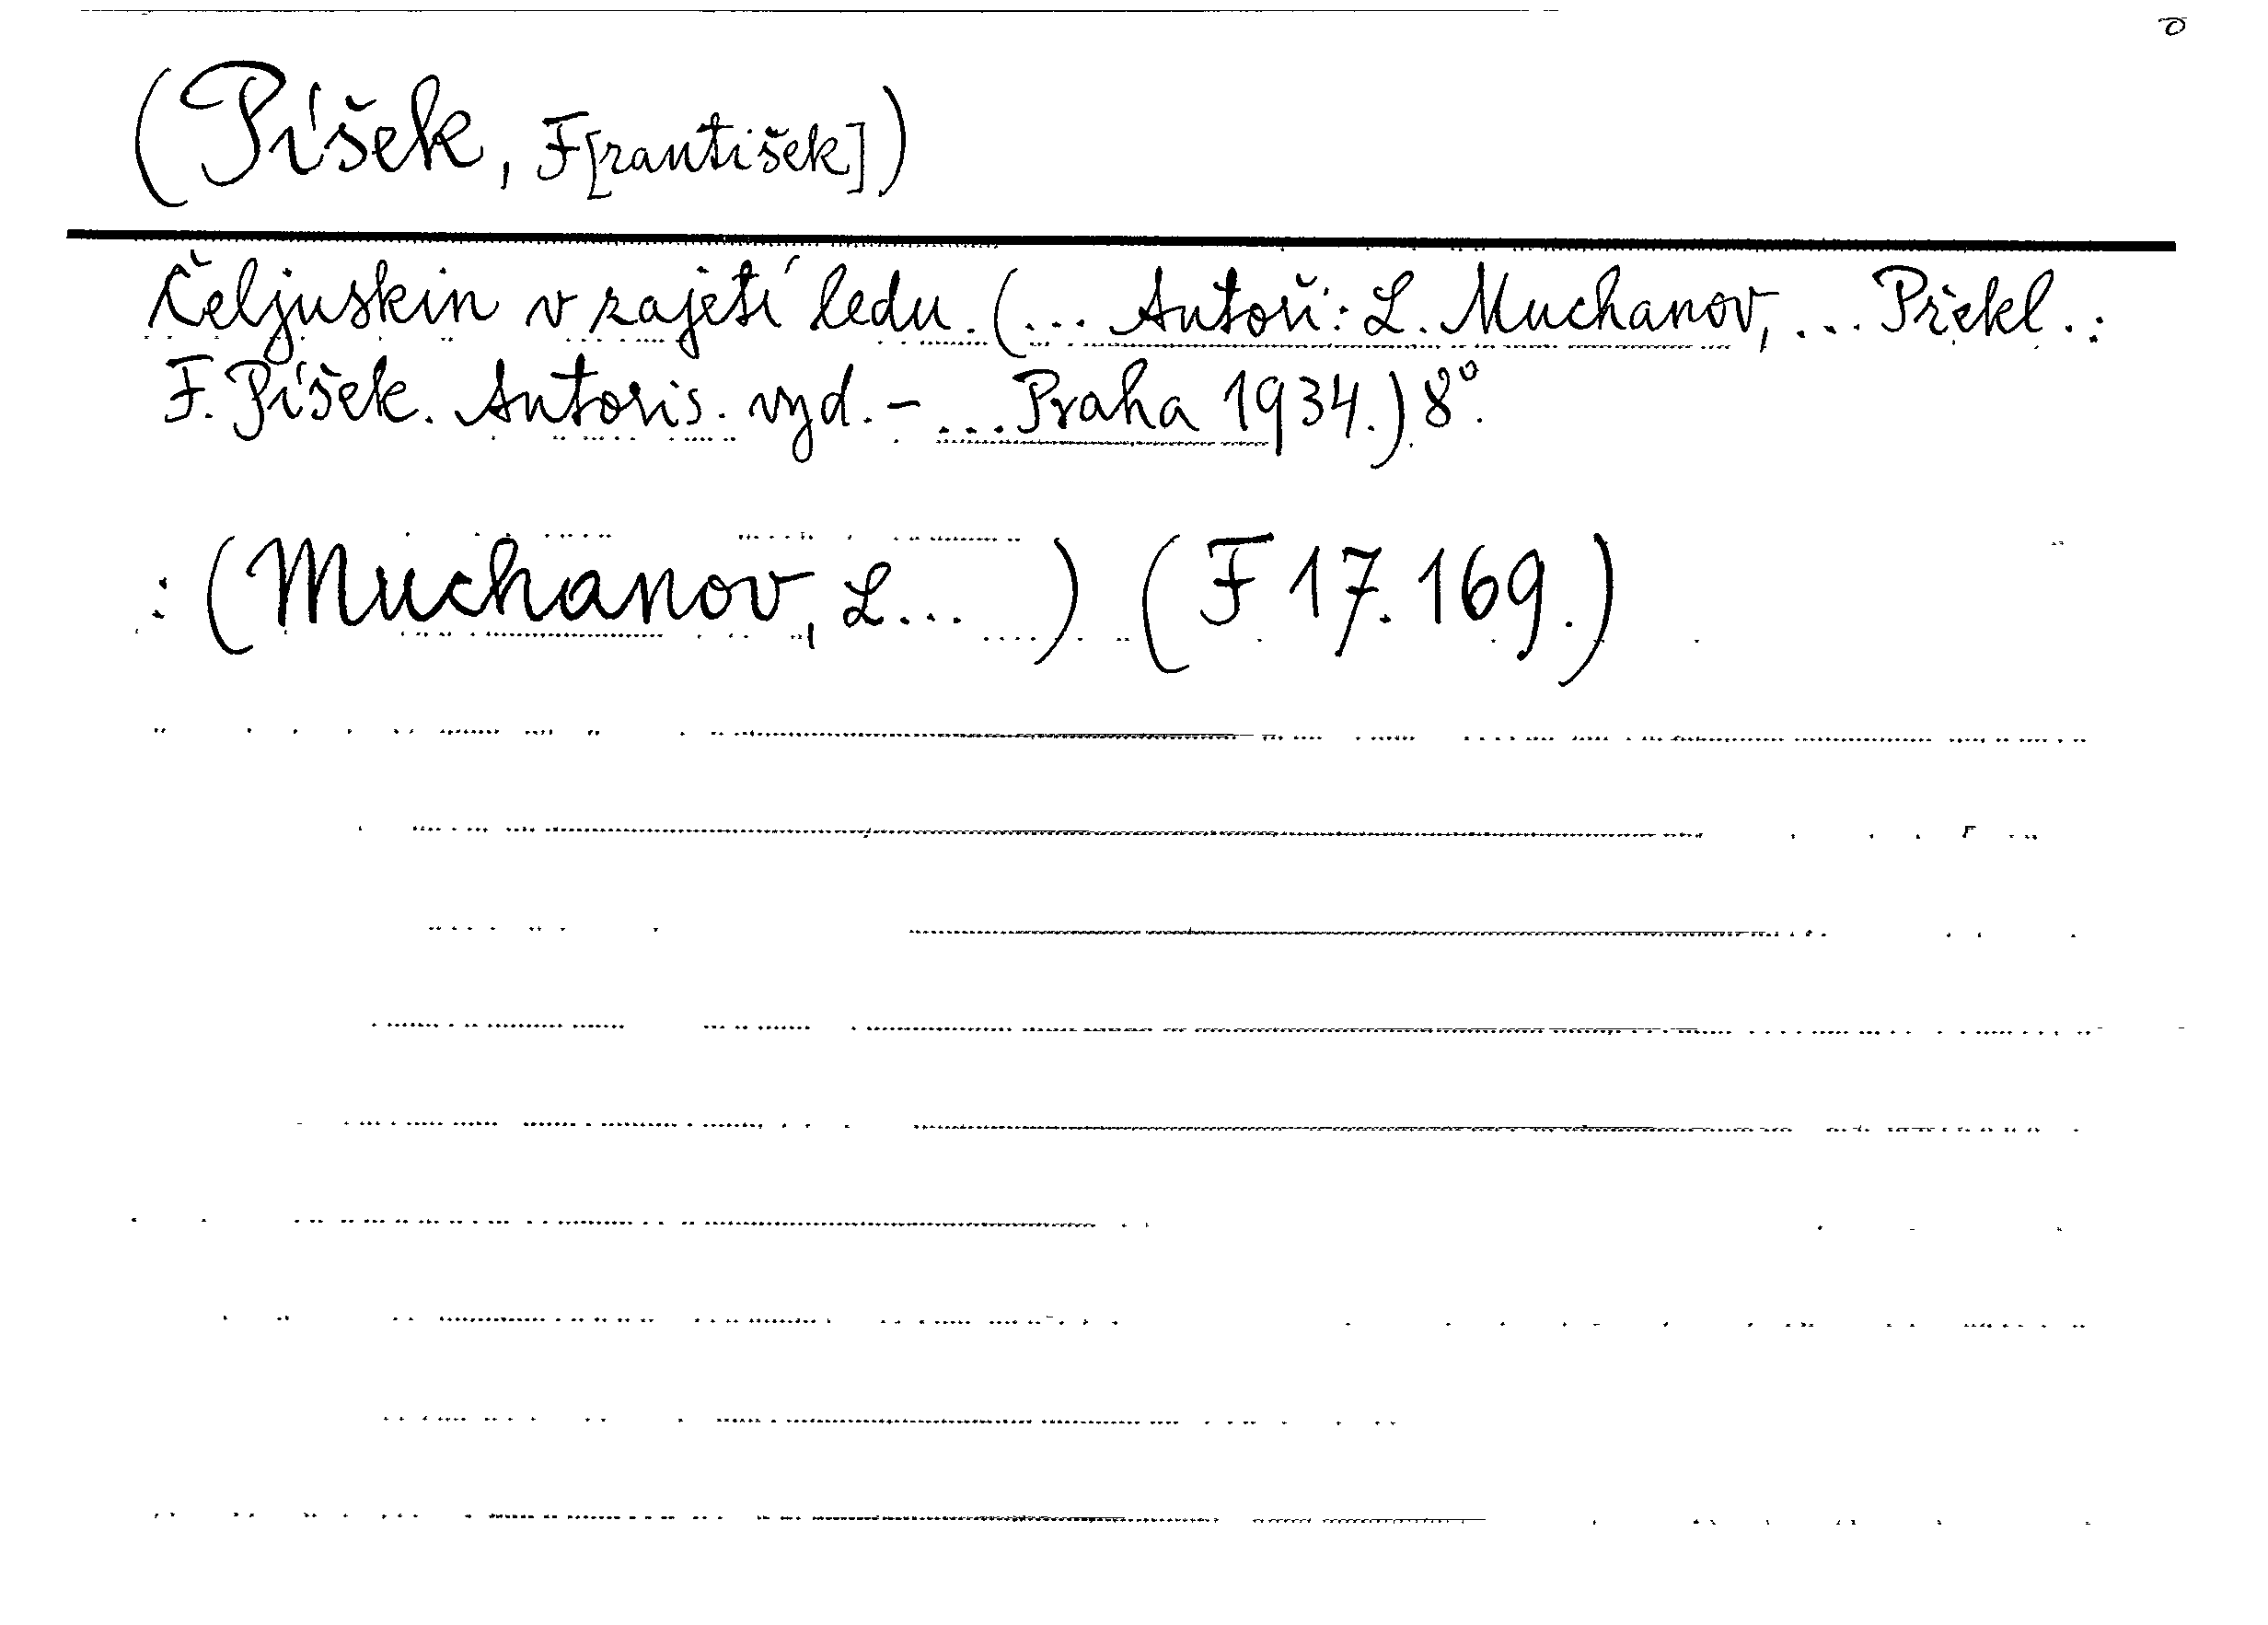 (Píšek, F[rantišek])
Čeljuskin v zajetí ledu. (... Autoři: L. Muchanov, ... Překl.:
F. Píšek. Autoris. vyd. - ... Praha 1934.) 8°.
: (Muchanov, L... ) (F 17.169.)